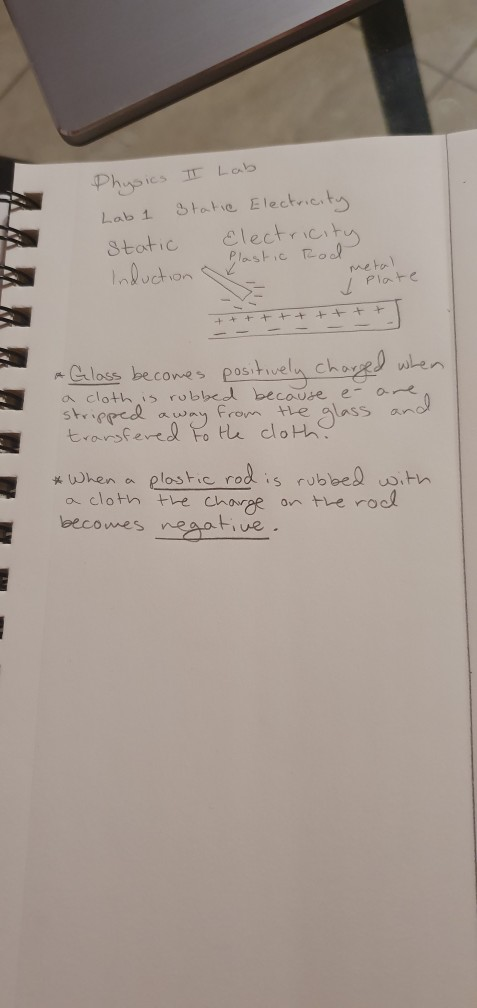 Physics II Lab
Lab 1 Static Electricity
Static Electricity
Induction
Plastic Rod
metal
Plate
+ + + + + + + + +
* Glass becomes positively charged when
a cloth is rubbed because e- are
stripped away from the glass and
transfered to the cloth.
* When a plastic rod is rubbed with
a cloth the charge on the rod
becomes negative.